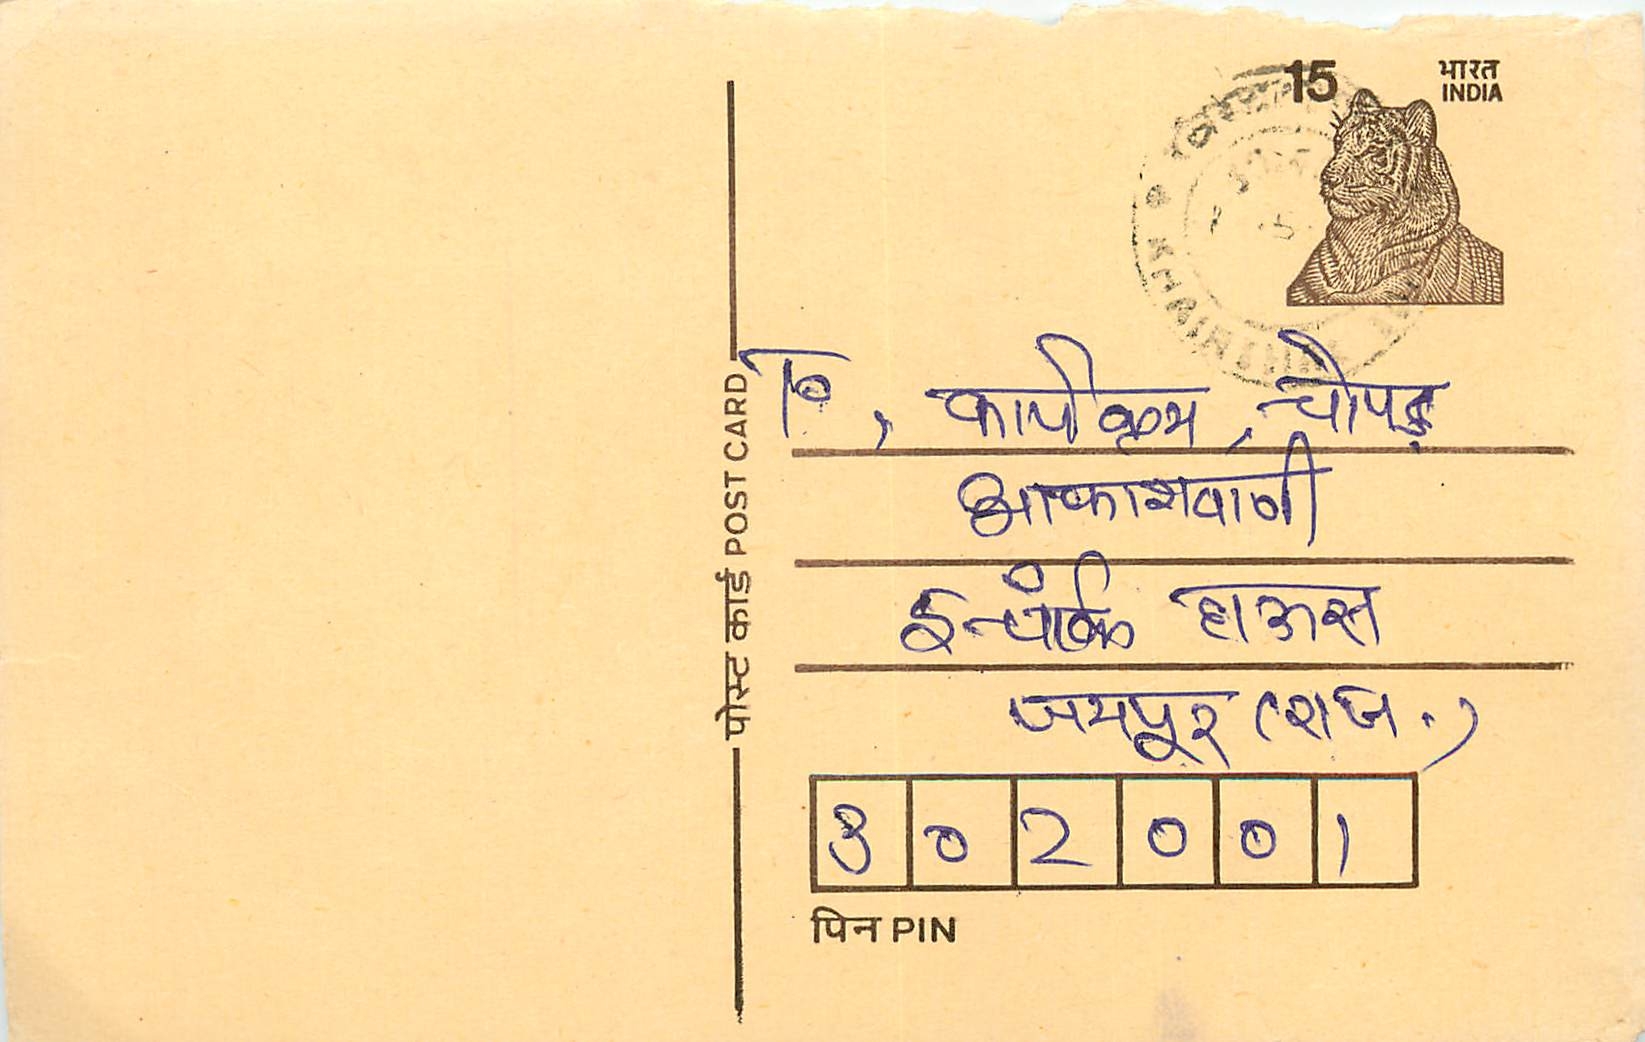 15 भारत
INDIA
पोस्ट कार्ड POST CARD
To, कार्यक्रम, चौपड़
आकाशवाणी
हाऊस
जयपूर (राज.)
302001
पिन PIN